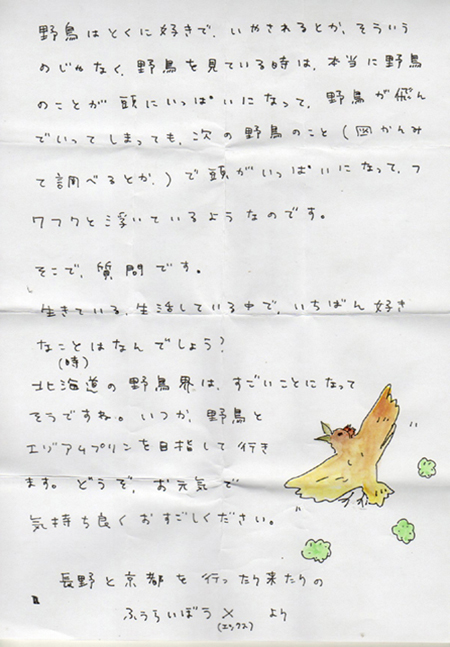 野鳥はとくに好きで、いやされるとか、そういう
のじゃなく、野鳥を見ている時は、本当に野鳥
のことが頭にいっぱいになって、野鳥が飛ん
でいってしまっても、次の野鳥のこと(図かんみ
て調べるとか、)で頭がいっぱいになって、フ
ワフワと浮いているようなのです。
そこで、質問です。
生きている、生活している中で、いちばん好き
なことはなんでしょう?
(時)
北海道の野鳥界は、すごいことになって
そうですね。いつか、野鳥と
エゾアムプリンを目指して行き
ます。どうぞ、お元気で
気持ち良くおすごしください。
長野と京都を行ったり来たりの
ふうらいぼう X より
(エックス)